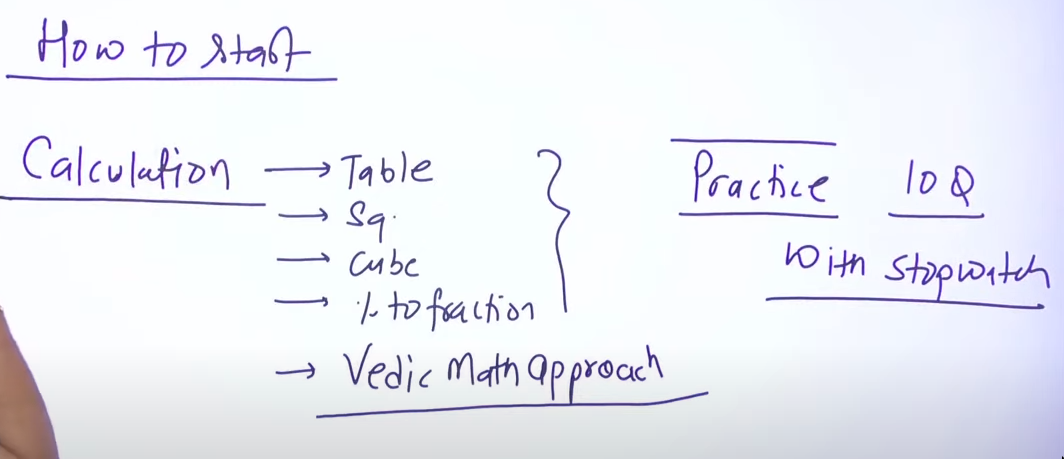 How to start
Calculation → Table
→ Sq.
→ Cube
→ % to fraction
→ Vedic Math Approach
Practice 10 Q
With stopwatch